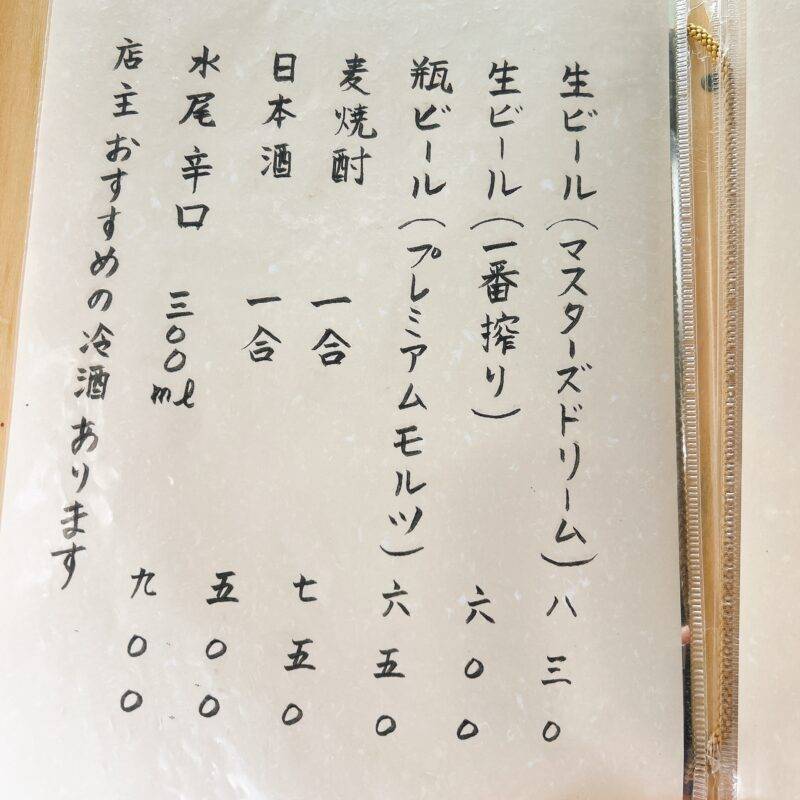 生ビール(マスターズドリーム)八三〇
生ビール(一番搾り)六〇〇
瓶ビール(プレミアムモルツ)六五〇
麦焼酎 一合 七五〇
日本酒 一合 五〇〇
水尾 辛口 三〇〇ml 九〇〇
店主おすすめの冷酒あります